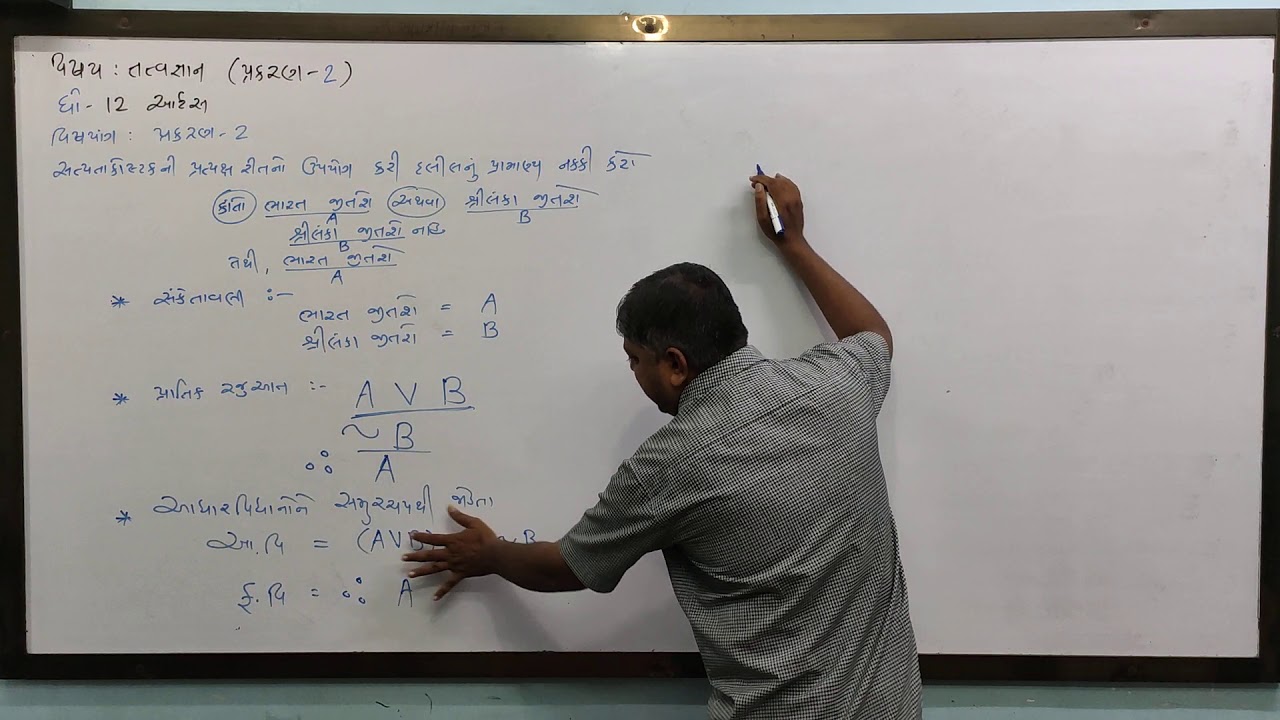 વિષય : તત્વજ્ઞાન (પ્રકરણ-2)
ધો - 12 આર્ટસ
વિષયાંગ : પ્રકરણ - 2
સત્યતાકોષ્ટકની પ્રત્યક્ષ રીતનો ઉપયોગ કરી દલીલનું પ્રામાણ્ય નક્કી કરો
કાંતો ભારત જીતશે અથવા શ્રીલંકા જીતશે
A B
શ્રીલંકા જીતશે નહિ
B
તેથી, ભારત જીતશે
A
* સંકેતાવલી :-
ભારત જીતશે = A
શ્રીલંકા જીતશે = B
* પ્રાતિક રજુઆત :-
A V B
~ B
∴ A
* આધારવિધાનોને સમુચ્ચયથી જોડતા
આ.વિ = (A V B) ~B
ફ.વિ = ∴ A